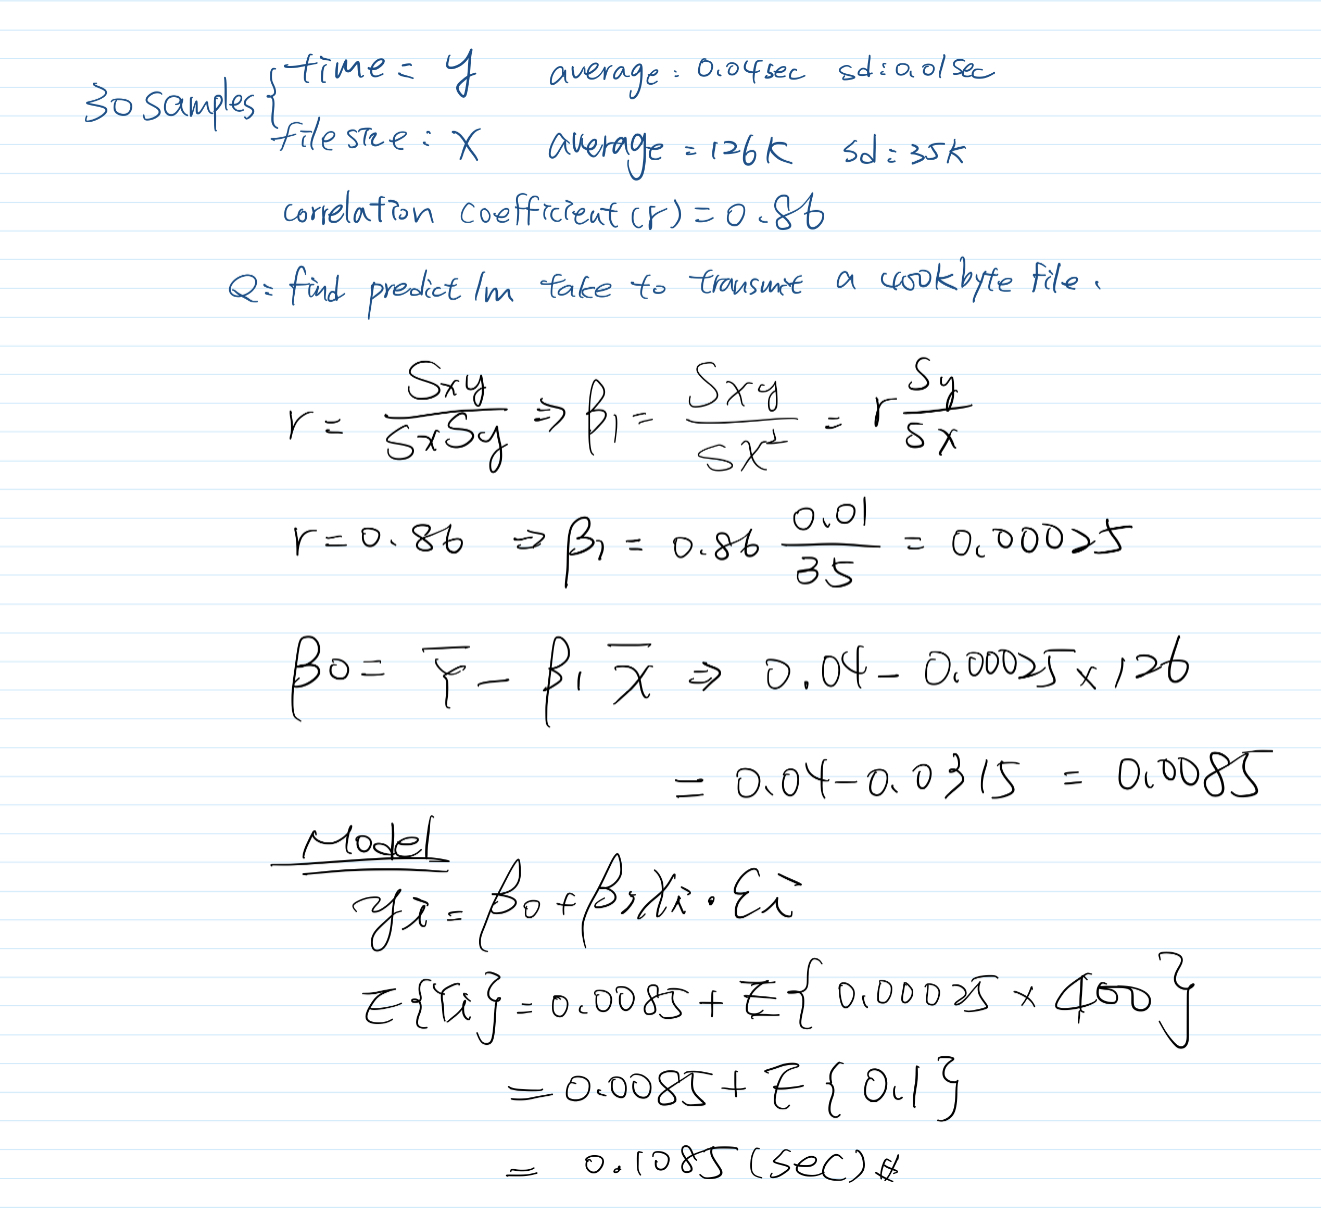 30 samples { time = y average : 0.04sec sd : 0.01sec
file size : X average = 126K sd : 35K
correlation coefficient (r) = 0.86
Q = find predict take to transmit a 400kbyte file.
r = Sxy / SxSy ⇒ β1 = Sxy / Sx² = r Sy / Sx
r = 0.86 ⇒ β1 = 0.86 0.01 / 35 = 0.00025
β0 = Y̅ - β1 X̅ ⇒ 0.04 - 0.00025 × 126
= 0.04 - 0.0315 = 0.0085
Model
yi = β0 + β1Xi · εi
E{Yi} = 0.0085 + E{0.00025 × 400}
= 0.0085 + E{0.1}
= 0.1085 (sec) #